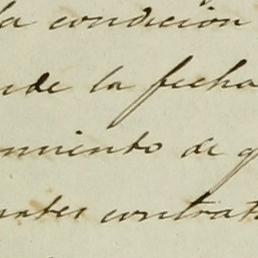 la condicion
de la fecha
miento de
contrat